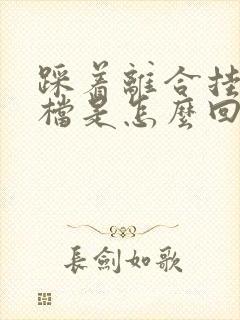 踩着離合挂
檔是怎麼回
長劍如歌